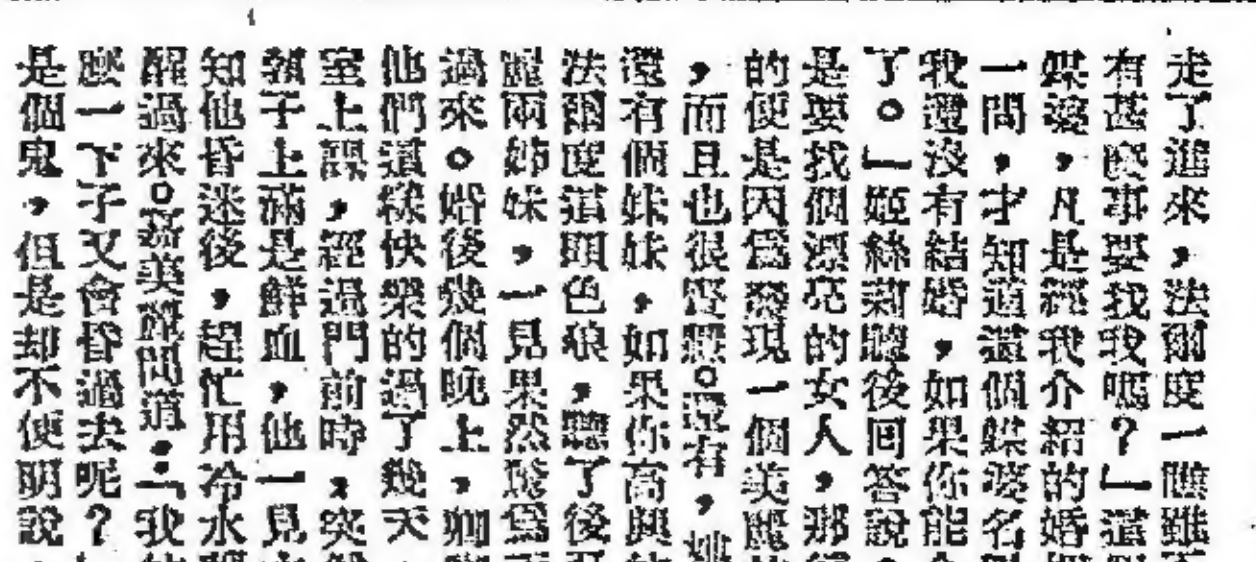 走了進來,法爾度一瞧雖
有甚麼事要找我嗎?」這
媒婆,凡是經我介紹的婚
一問,才知道這個媒婆名
我還沒有結婚,如果你能
了。」姬絲莉聽後回答說
是要找個漂亮的女人,那
的便是因為發現一個美麗
,而且也很賢。還有,她
還有個妹妹,如果你高興
法爾度這頭色狼,聽了後
麗兩姊妹,一見果然驚為
過來。婚後幾個晚上,卿
他們這樣快樂的過了幾天
室上課,經過門前時,突
領子上滿是鮮血,他一見
知他昏迷後,趕忙用冷水
醒過來。嘉美麗問道:「我
麼一下子又會昏過去呢?
是個鬼,但是却不便明說